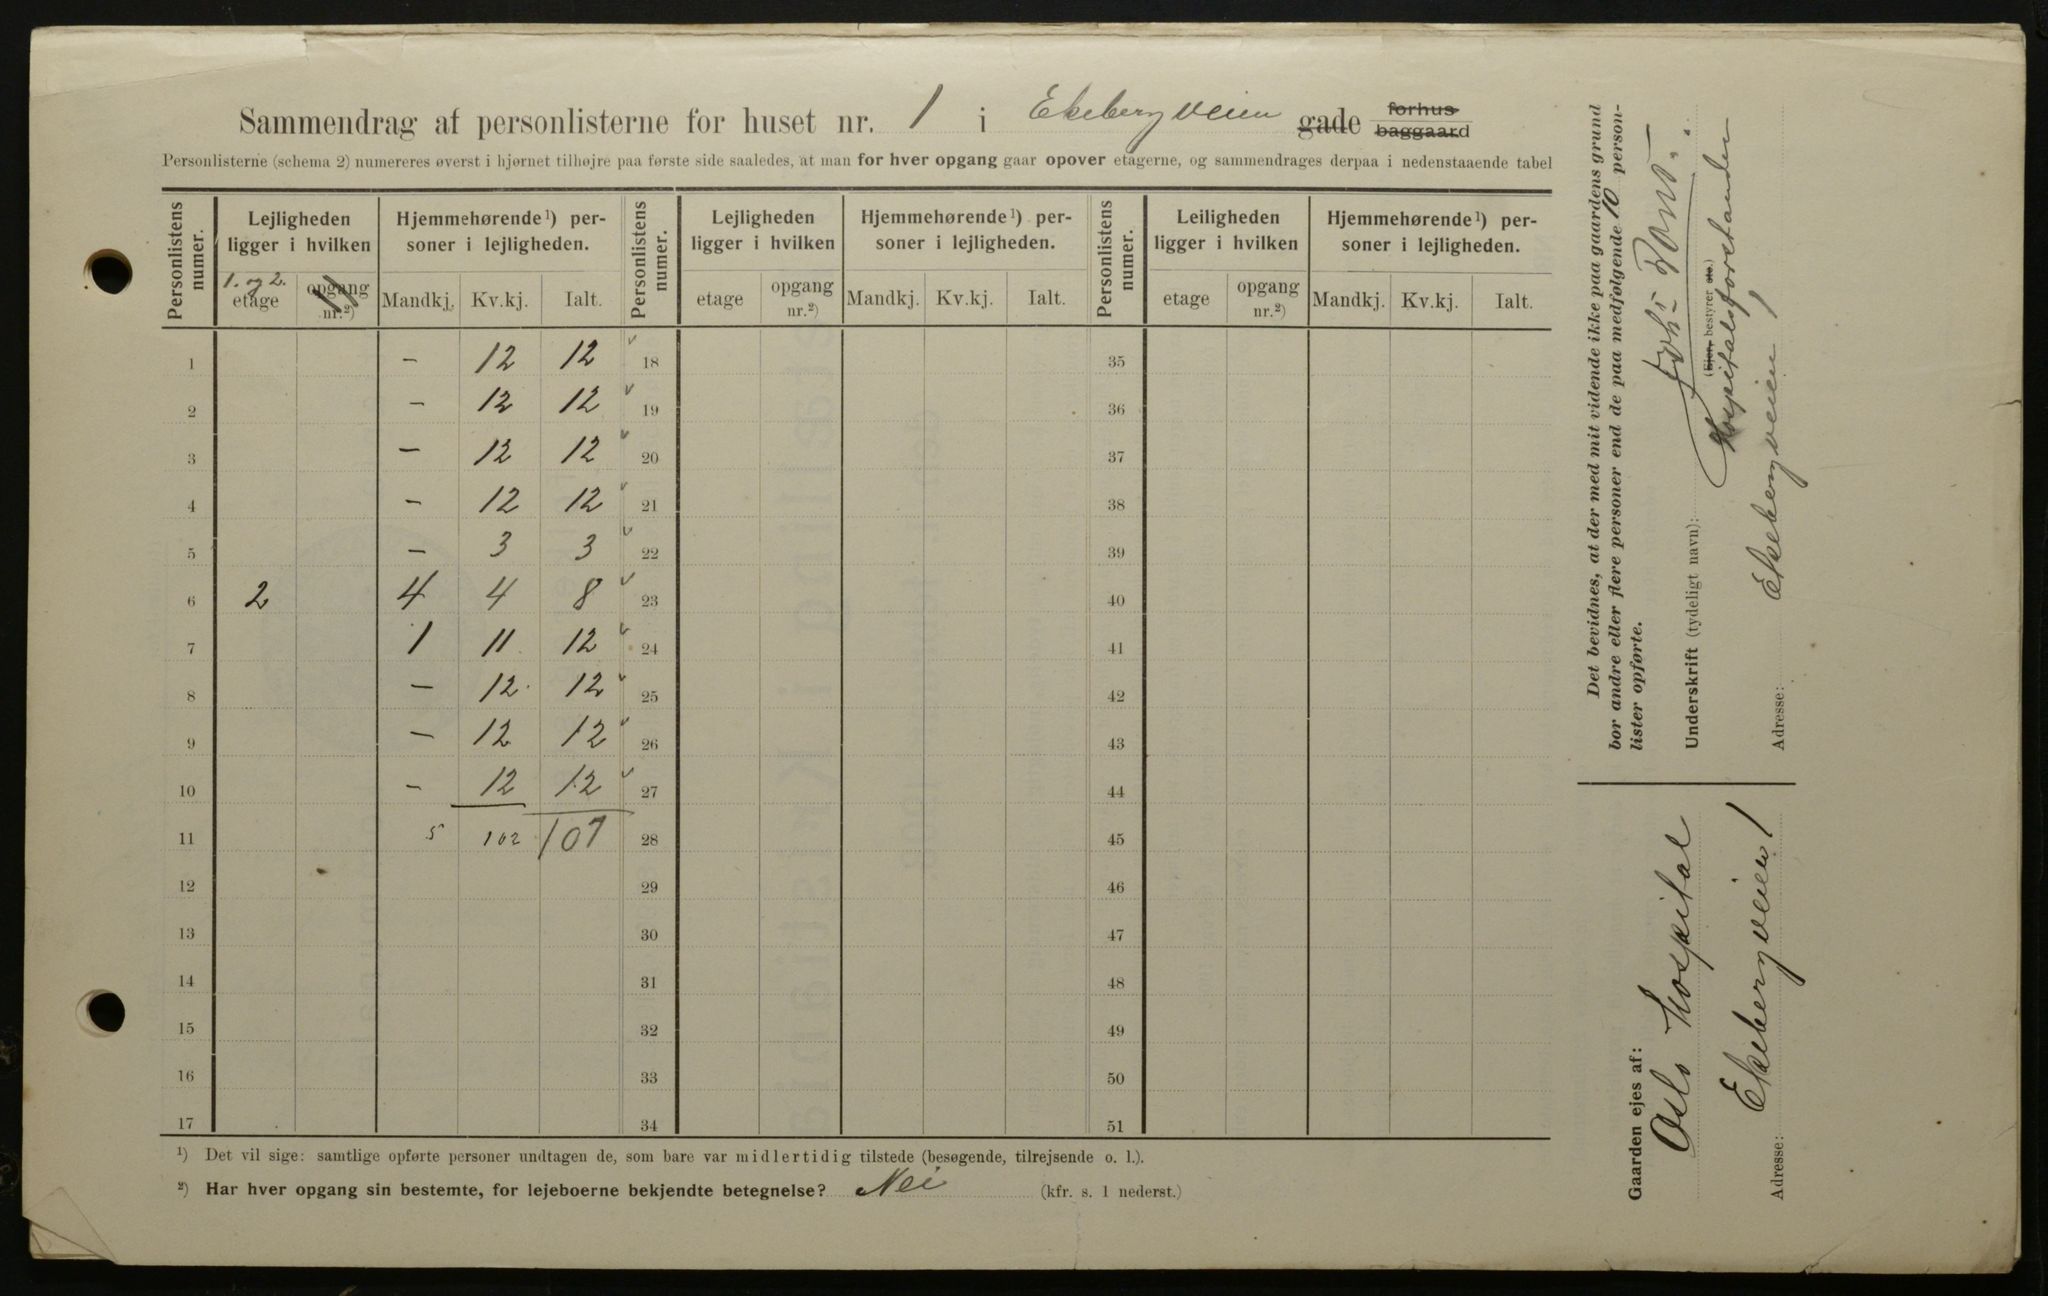 Sammendrag af personlisterne for huset nr. 1 i Ekebergveien gade forhus baggaard
Personlisterne (schema 2) numereres øverst i hjørnet tilhøjre paa første side saaledes, at man for hver opgang gaar opover etagerne, og sammendrages derpaa i nedenstaaende tabel
Personlistens numer. Lejligheden ligger i hvilken Hjemmehørende 1) personer i lejligheden. Personlistens numer. Lejligheden ligger i hvilken Hjemmehørende 1) personer i lejligheden. Personlistens numer. Leiligheden ligger i hvilken Hjemmehørende 1) personer i lejligheden.
1. og 2. etage opgang nr. 2) Mandkj. Kv.kj. Ialt. etage opgang nr. 2) Mandkj. Kv.kj. Ialt. etage opgang nr. 2) Mandkj. Kv.kj. Ialt.
1 – 12 12 18 35
2 – 12 12 19 36
3 – 12 12 20 37
4 – 12 12 21 38
5 – 3 3 22 39
6 2 4 4 8 23 40
7 1 11 12 24 41
8 – 12 12 25 42
9 – 12 12 26 43
10 – 12 12 27 44
11 5 102 107 28 45
12 29 46
13 30 47
14 31 48
15 32 49
16 33 50
17 34 51
1) Det vil sige: samtlige opførte personer undtagen de, som bare var midlertidig tilstede (besøgende, tilrejsende o. l.).
2) Har hver opgang sin bestemte, for lejeboerne bekjendte betegnelse? Nei (kfr. s. 1 nederst.)
Det bevidnes, at der med mit vidende ikke paa gaardens grund
bor andre eller flere personer end de paa medfølgende 10 person-
lister opførte.
Underskrift (tydeligt navn):
(Ejer, bestyrer etc.)
Hospitalsforstander
Adresse: Ekebergveien 1
Gaarden ejes af:
Oslo Hospital
Adresse: Ekebergveien 1